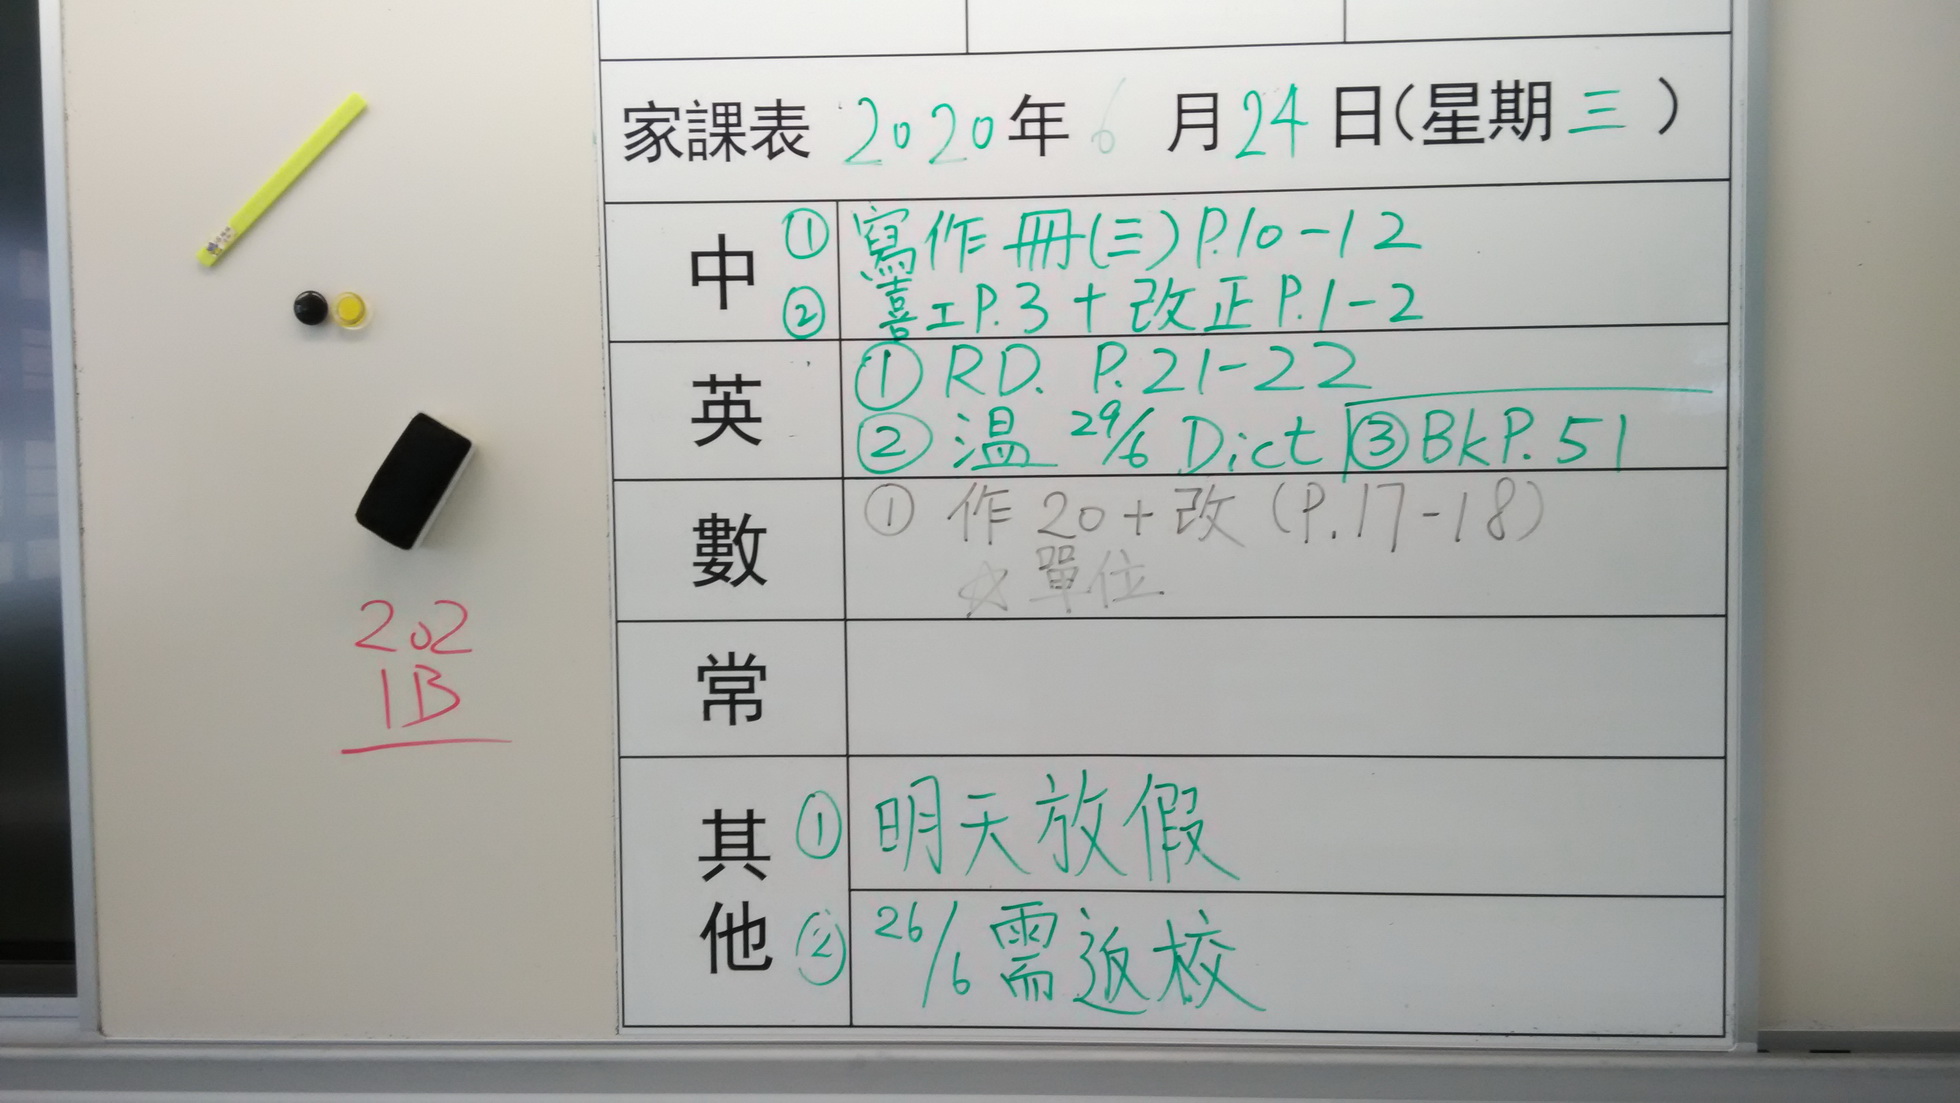 家課表 2020年 6 月 24 日(星期 三 )
中 ① 寫作冊(三) P.10-12
② 喜工P.3 + 改正 P.1-2
英 ① RD. P.21-22
② 温 29/6 Dict ③ BkP.51
數 ① 作20+改 (P.17-18)
☆ 單位
常
其他 ① 明天放假
② 26/6 需返校
202
1B